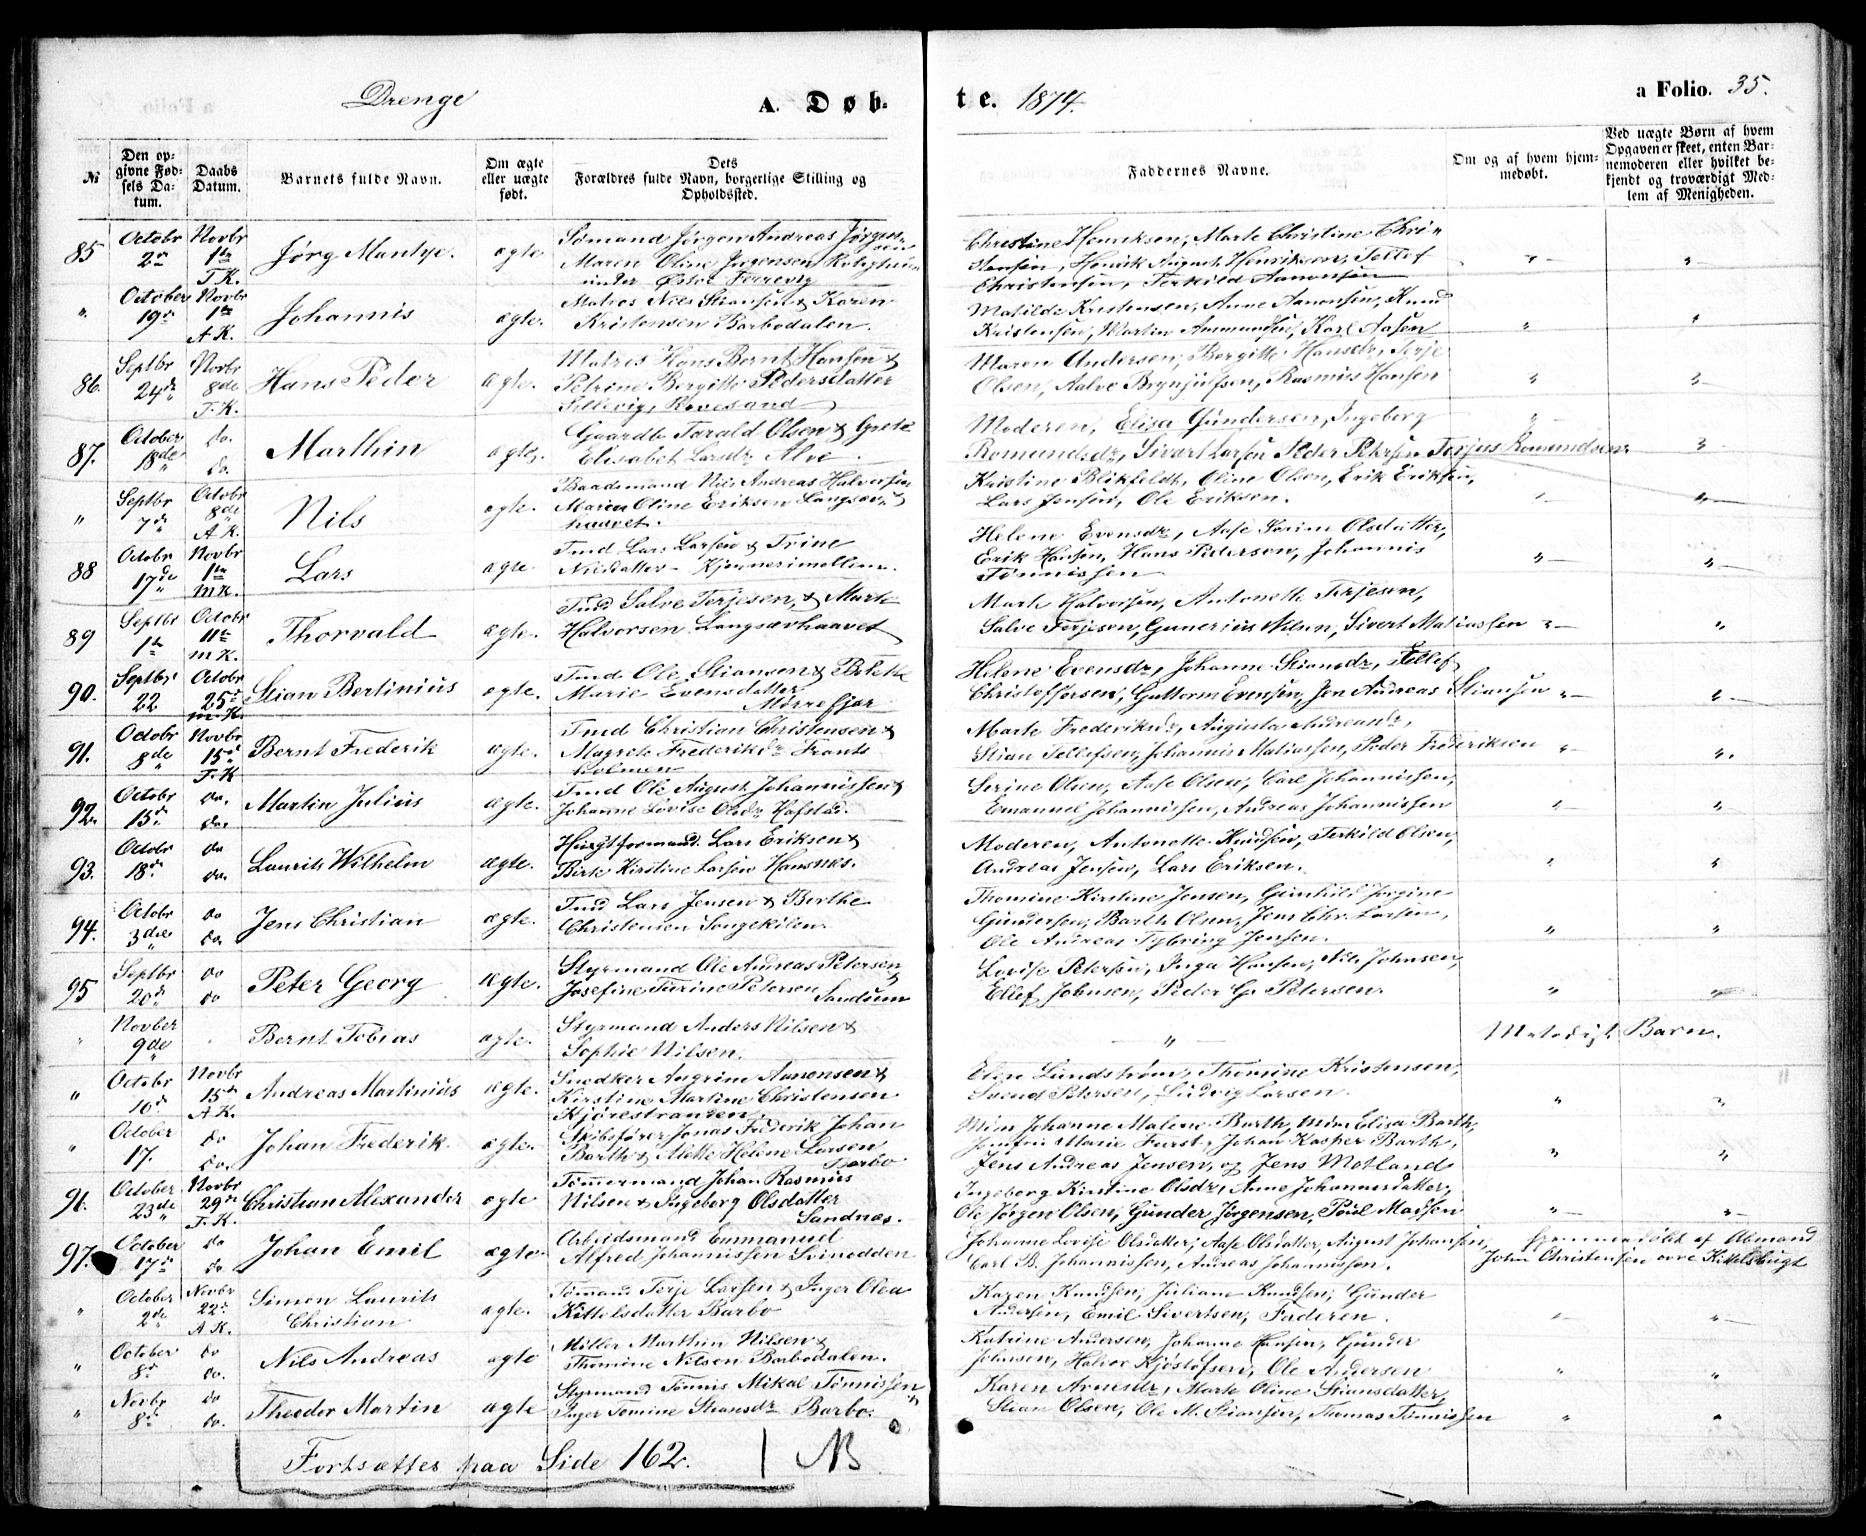 Drenge
A. Døb-
te. 1874.
a Folio. 35.
№
Den opgivne Fødsels Datum.
Daabs Datum.
Barnets fulde Navn.
Om ægte eller uægte født.
Dets Forældres fulde Navn, borgerlige Stilling og Opholdssted.
Faddernes Navne.
Om og af hvem hjemmedøbt.
Ved uægte Børn af hvem Opgaven er skeet, enten Barnemoderen eller hvilket bekjendt og troværdigt Medlem af Menigheden.
85 Octobr 2 Novbr 1 T. K. Jørg ægte Sømand Jørgen Andreas Jørgensen
Maren Oline Jørgensen
under Østre
Christine Henriksen, Marte Christine Chri-
stensen, Henrik August Henriksen, Tellef
Christensen, Terkild Aanonsen
" October 19 Novbr 1 A. K. Johannis ægte. Matros Nils Stiansen & Karen
Kristensen Barbodalen.
Matilde Kristensen, Anne Aanonsen, Knud
Kristensen, Martin Ammundsen, Karl Aasen
86. Septbr 24 Novbr 8de T. K. Hans Peder ægte. Matros Hans Bernt Hansen &
Petrine Bergitte Pedersdatter
Sillevig, Revesand
Maren Andersen, Bergitte Hansdr, Terje
Olsen, Aalve Brynjulfsen, Rasmus Hansen
87. October 18de do. do. Marthin ægte, Gaardb Tarald Olsen & Grete
Elisabet Larsdr Alve
Moderen, Elisa Gundersen, Ingeborg
Romundsdr, Sivert Larsen Peder Petersen Terjus Romundsen
" Septbr 7 Octobr 8de A. K. Nils ægte Baadsmand Nils Andreas Halvorsen &
Maren Oline Eriksen Langsæv-
haavet.
Kristine Blikfeldt, Oline Olsen, Erik Eriksen,
Lars Jensen, Ole Eriksen.
88 Octobr 17de Novbr 1 M K. Lars ægte Tmd Lars Larsen & Trine
Nilsdatter
Helene Evensdr, Aase Sørine Olsdatter,
Erik Hansen, Hans Pedersen, Johannis
Tønnissen
89 Septbr 1 Octobr 11 M K. Thorvald ægte. Tmd Salve Terjesen, & Marte
Halvorsen Langsævhaavet
Marte Halvorsen, Antonette Terjesen,
Salve Terjesen, Gunerius Nilsen, Sivert Matiassen
90. Septbr 22 Octobr 25 M. K. Stian Bertinius ægte. Tmd Ole Stiansen &
Marie Evensdatter
Mørrefjær
Helene Evensdr, Johanne Stiansdr, Tellef
Christoffersen, Guttorm Evensen, Jon Andreas Stiansen
91. Octobr 8de Novbr 15 T. K Bernt Frederik ægte. Tmd Christian Christensen &
Magrete Frederiksdr Frants
holmen
Marte Frederiksdr, Augusta Andreasdr,
Stian Tellefsen, Johannis Matiassen, Peder Frederiksen
92. Octobr 15 do. do. Martin Julius ægte. Tmd Ole August Johannissen &
Johanne Lovise Olsdr Hafstad.
Serine Olsen, Aase Olsen, Carl Johannissen,
Emanuel Johannissen, Andreas Johannissen
93. Octobr 18 do do. Laurits Wilhelm ægte. Lars Eriksen &
Birte Kirstine Larsen Hansnæs.
Moderen, Antonette Knudsen, Terkild Olsen,
Andreas Jensen, Lars Eriksen.
94. Octobr 3die do do. Jens Christian ægte. Tmd Lars Jensen & Berthe
Christensen Songekilen.
Thomine Kirstine Jensen, Gunhild Jørgine
Gundersen, Barth Olsen, Jens Chr. Larsen,
Ole Andreas Tybring Jensen.
95 Septbr 20 do do Peter Georg ægte. Styrmand Ole Andreas Petersen &
Josefine Turine Petersen Sandum
Lovise Petersen, Inga Hansen, Nils Johnsen,
Ellef Johnsen, Peder G. Petersen.
Novber 9de Bernt Tobias ægte. Styrmand Anders Nilsen &
Sophie Nilsen.
" Metodist Barn.
" Octobr 10 Novbr 15 A. K. Andreas Martinius ægte. Snedker Angrim Aanonsen &
Kirstine Martine Christensen
Kjørestranden.
Elen Lundstrøm, Thomine Kristensen,
Svend Petersen, Ludvig Larsen.
" October 17. do do. Johan Frederik. ægte. Skibsfører Jonas Frederik Johan
Barth & Alette Helene Larsen
Barbo
Johanne Malene Barth, Elisa Barth,
Marie Furst, Johan Kasper Barth,
Jens Andreas Jensen, og Jens Motland
96. October 23de Novbr 29 T. K. Christian Alexander ægte Tømmermand Johan Rasmus
Nilsen & Ingeborg Olsdatter
Sandnæs.
Ingeborg Kirstine Olsdr, Anne Johannesdatter,
Ole Jørgen Olsen, Gunder Jørgensen, Poul Madsen
97. October 17 do do. Johan Emil ægte Arbeidsmand Emmanuel
Alfred Johannissen Svinodden
Johanne Lovise Olsdatter, Aase Olsdatter, August Johansen,
Carl B. Johannissen, Andreas Johannissen.
Hjemmedøbt af Almand
John Christensen Kittelsbugt
" October 2de Novbr 22 A. K. Simon Laurits
Christian ægte. Tømand Terje Larsen & Inger Olea
Kittelsdatter Barbo
Karen Knudsen, Juliane Knudsen, Gunder
Andersen, Emil Sivertsen, Faderen.
" October 8 do do. Nils Andreas ægte Møller Marthin Nilsen &
Thomine Nilsen Barbodalen.
Katrine Andersen, Johanne Hansen, Gunder
Johnsen, Halvor Kjøstofsen, Ole Andersen
" Novbr 8 do do. Theodor Martin ægte Styrmand Tønnis Mikal Tønnissen &
Inger Tomine Stiansdr Barbo.
Karen Arnesdr, Marte Oline Stiansdatter,
Stian Olsen, Ole M. Stiansen, Thomas Tønnissen
Fortsættes paa Side 162. NB